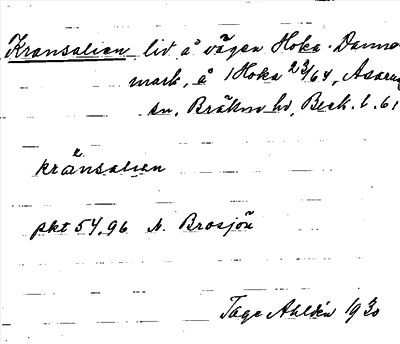 Kransalien liv å vägen Hoka - Danna
mark, å 1 Hoka 23/64, Asarum
sn, Bräkne hd, Beck. l. 61
kränsalien
pkt 54.96 N. Brosjön
Tage Ahldén 1930